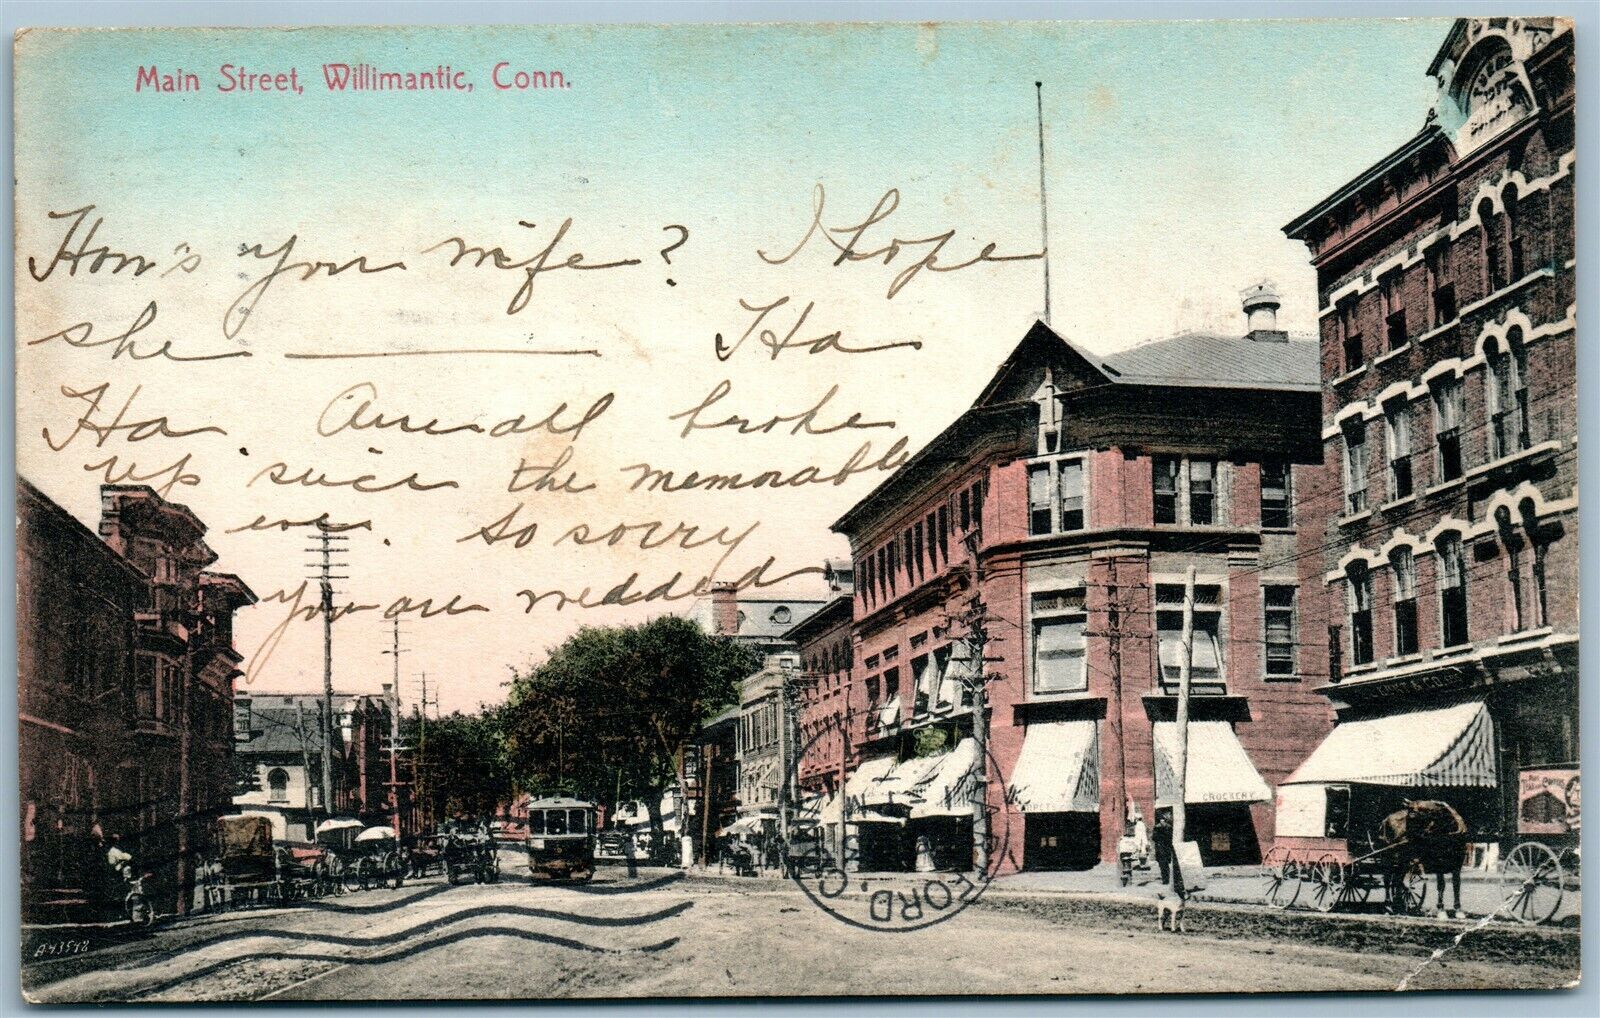 Main Street, Willimantic, Conn.
How's your wife? I hope
she ——— Ha
Ha. Am all broke
up since the memorable
eve. So sorry
you are wedded
CROCKERY
A-43572